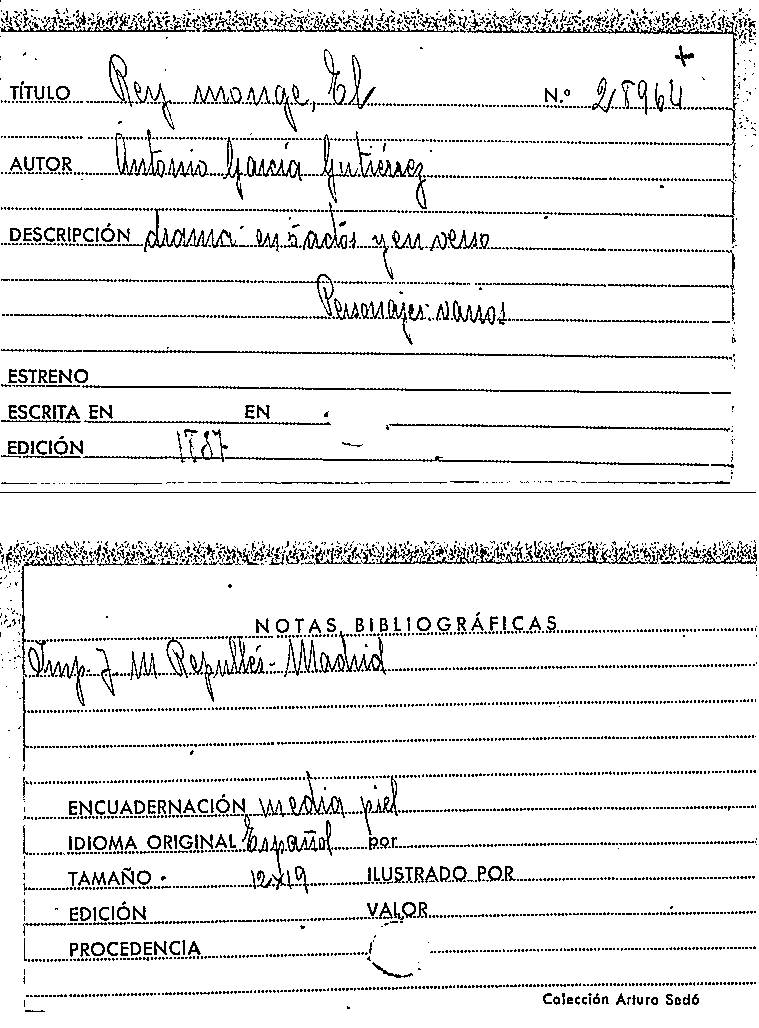 TÍTULO Rey monge, El N.º 28964
AUTOR Antonio García Gutiérrez
DESCRIPCIÓN drama en 5 actos y en verso
Personajes: varios
ESTRENO
ESCRITA EN EN
EDICIÓN
NOTAS BIBLIOGRÁFICAS
Imp. J. M Repullés - Madrid
ENCUADERNACIÓN media piel
IDIOMA ORIGINAL Español por
TAMAÑO 12x19 ILUSTRADO POR
EDICIÓN VALOR
PROCEDENCIA
Colección Arturo Sedó